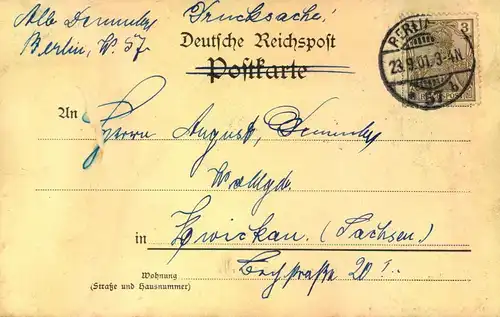 Alb Demmler Drucksache!
Berlin, W. 57.
Deutsche Reichspost
Postkarte
BERLIN
23.9.01.3-4N
3
An
Herrn August Demmler
in Zwickau. (Sachsen)
straße 20
Wohnung
(Straße und Hausnummer)